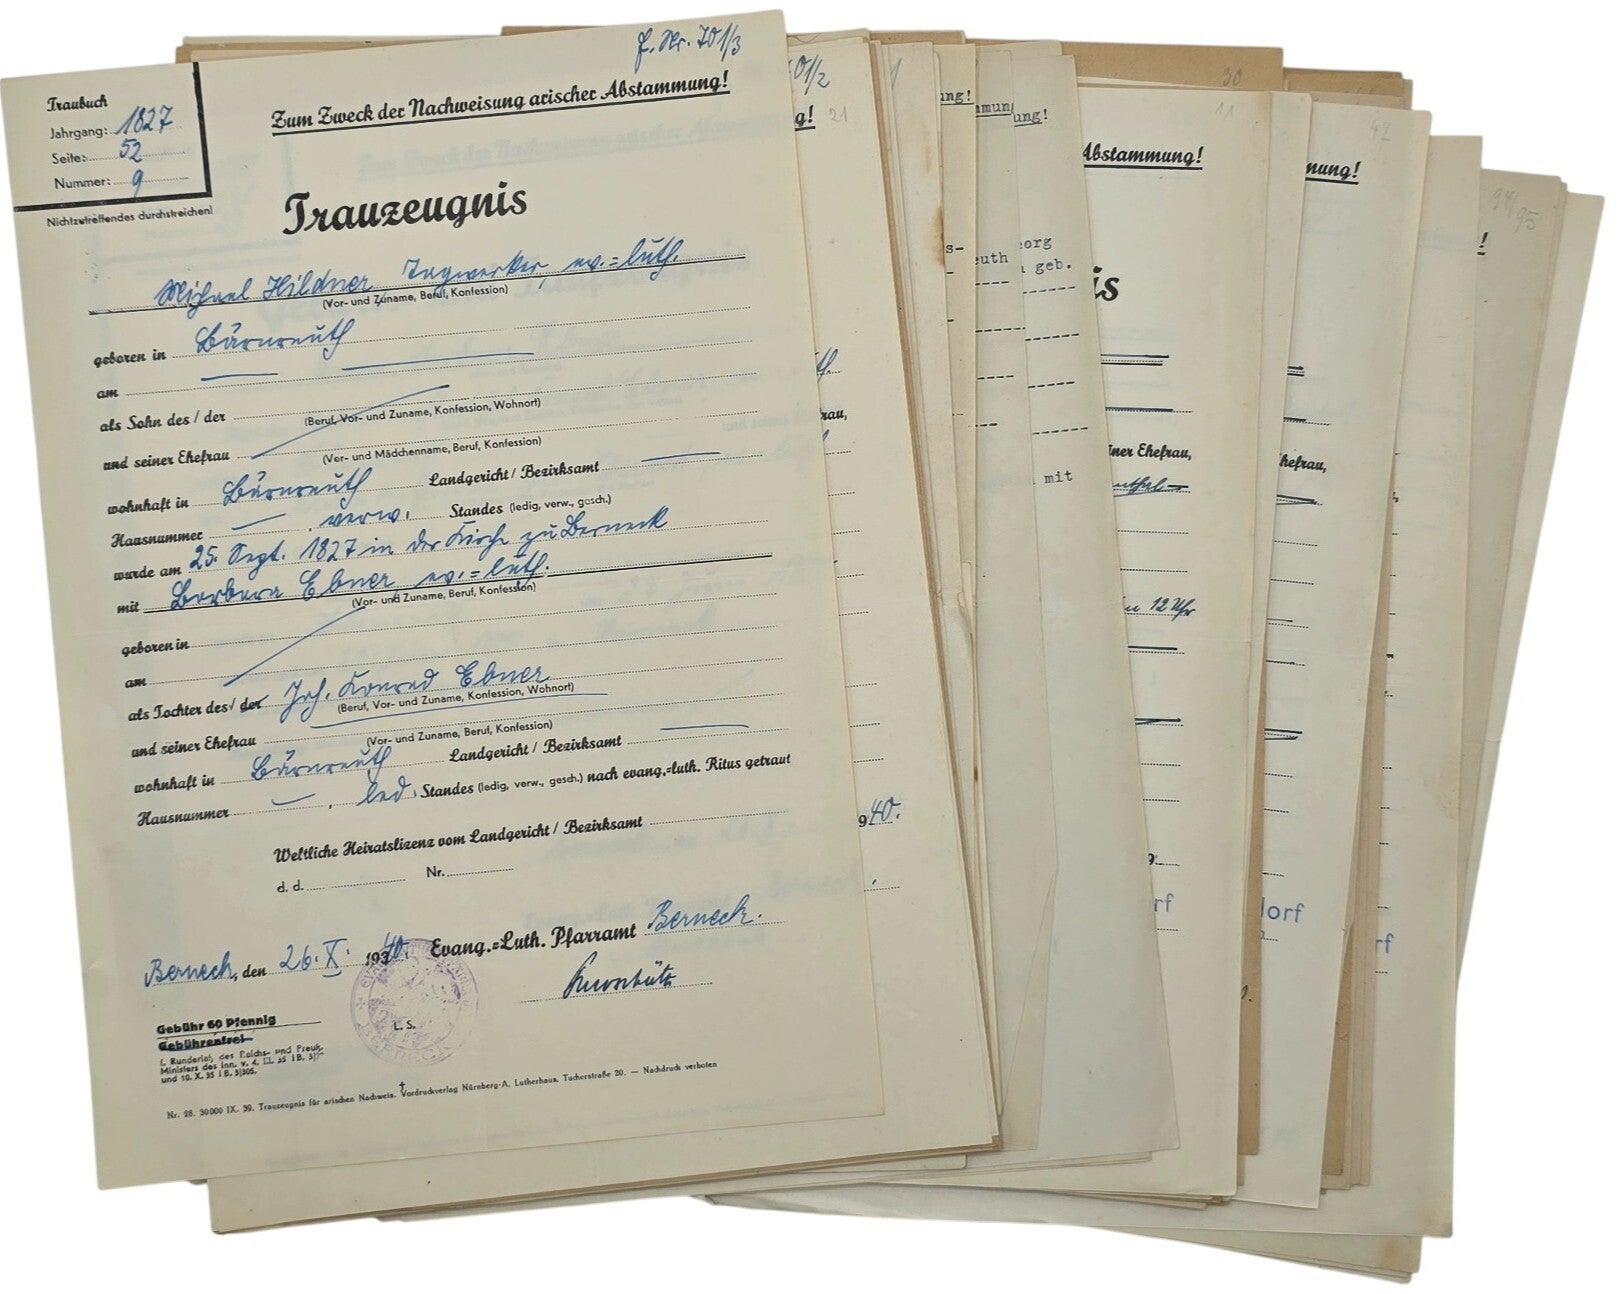 f. Nr. 701/3
Traubuch
Jahrgang: 1827
Seite: 52
Nummer: 9
Nichtzutreffendes durchstreichen!
Zum Zweck der Nachweisung arischer Abstammung!
Trauzeugnis
Michael Hildner, Tagwerker, ev.=luth.
(Vor- und Zuname, Beruf, Konfession)
geboren in Bärnreuth
am
als Sohn des / der
(Beruf, Vor- und Zuname, Konfession, Wohnort)
und seiner Ehefrau
(Vor- und Mädchenname, Beruf, Konfession)
wohnhaft in Bärnreuth Landgericht / Bezirksamt
Hausnummer — , verw. Standes (ledig, verw., gesch.)
wurde am 25. Sept. 1827 in der Kirche zu Berneck
mit Barbara Ebner ev.=luth.
(Vor- und Zuname, Beruf, Konfession)
geboren in
am
als Tochter des / der Joh. Konrad Ebner
(Beruf, Vor- und Zuname, Konfession, Wohnort)
und seiner Ehefrau
(Vor- und Zuname, Beruf, Konfession)
wohnhaft in Bärnreuth Landgericht / Bezirksamt
Hausnummer — , led. Standes (ledig, verw., gesch.) nach evang.=luth. Ritus getraut
Weltliche Heiratslizenz vom Landgericht / Bezirksamt
d. d. Nr.
Berneck, den 26. X. 1940. Evang.=Luth. Pfarramt Berneck.
L. S.
BERNECK
Gebühr 60 Pfennig
Gebührenfrei
f. Runderlaß des Reichs- und Preuß.
Ministers des Inn. v. 4. III. 35 I B. 3/7
und 10. X. 35 I B. 3/305.
Nr. 28. 30000 IX. 39. Trauzeugnis für arischen Nachweis. Vordruckverlag Nürnberg-A, Lutherhaus, Tucherstraße 20. — Nachdruck verboten
01/2
g!
21
rau,
940.
ung!
mmun
ung!
s-
euth
eorg
geb.
mit
30
11
Abstammung!
is
iner Ehefrau,
enthal
12 Uhr
9
rf
mmung!
Ehefrau,
dorf
94/95
!
rf